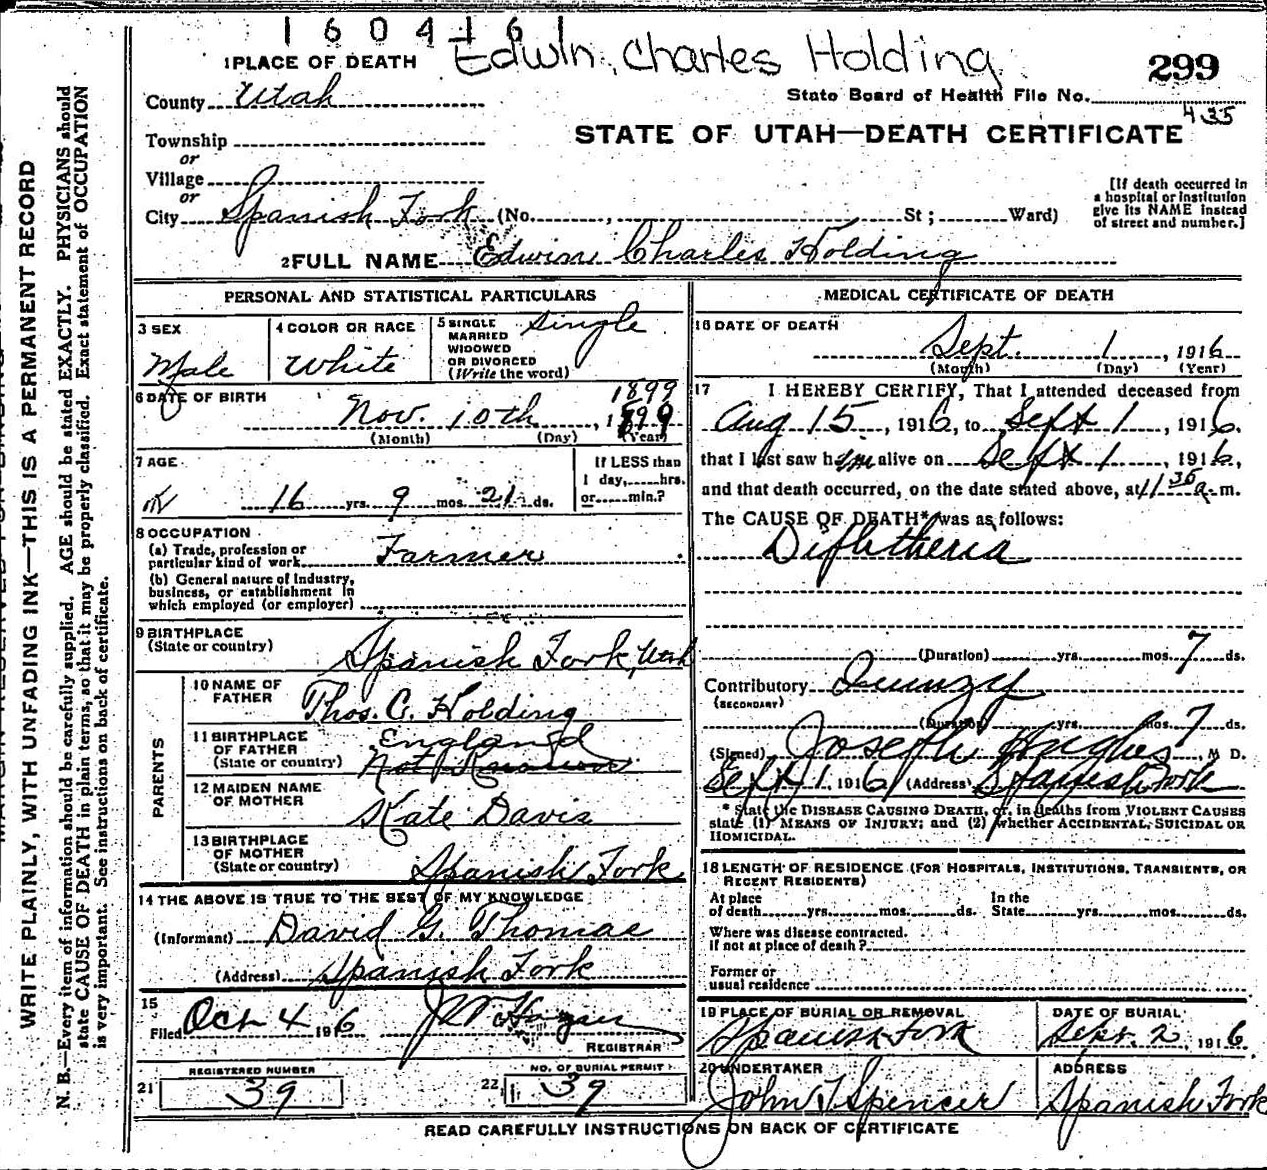 1604161
Edwin Charles Holding
299
1 PLACE OF DEATH
County Utah
State Board of Health File No.
435
Township
or
Village
or
STATE OF UTAH—DEATH CERTIFICATE
City Spanish Fork (No. , St ; Ward)
[If death occurred in
a hospital or institution
give its NAME instead
of street and number.]
2 FULL NAME Edwin Charles Holding
PERSONAL AND STATISTICAL PARTICULARS
3 SEX
Male
4 COLOR OR RACE
White
5 SINGLE
MARRIED
WIDOWED
OR DIVORCED
(Write the word)
Single
6 DATE OF BIRTH
1899
Nov. 10th, 1899
(Month) (Day) (Year)
7 AGE
16 yrs. 9 mos. 21 ds.
If LESS than
1 day, hrs.
or min.?
8 OCCUPATION
(a) Trade, profession or
particular kind of work Farmer
(b) General nature of Industry,
business, or establishment in
which employed (or employer)
9 BIRTHPLACE
(State or country)
Spanish Fork, Utah
PARENTS
10 NAME OF
FATHER
Thos. C. Holding
11 BIRTHPLACE
OF FATHER
(State or country)
England
Not Known
12 MAIDEN NAME
OF MOTHER
Kate Davis
13 BIRTHPLACE
OF MOTHER
(State or country)
Spanish Fork
14 THE ABOVE IS TRUE TO THE BEST OF MY KNOWLEDGE
(Informant) David G. Thomas
(Address) Spanish Fork
15
Filed Oct 4 1916
REGISTRAR
REGISTERED NUMBER
21 39
NO. OF BURIAL PERMIT
22 39
MEDICAL CERTIFICATE OF DEATH
16 DATE OF DEATH
Sept. 1, 1916
(Month) (Day) (Year)
17 I HEREBY CERTIFY, That I attended deceased from
Aug 15, 1916, to Sept 1, 1916.
that I last saw him alive on Sept 1, 1916,
and that death occurred, on the date stated above, at 11 35 a.m.
The CAUSE OF DEATH* was as follows:
Diphtheria
(Duration) yrs. mos. 7 ds.
Contributory Quinzy
(SECONDARY)
(Duration) yrs. mos. 7 ds.
(Signed) Joseph Hughes, M D.
Sept 1, 1916 (Address) Spanish Fork
* State the DISEASE CAUSING DEATH, or, in deaths from VIOLENT CAUSES
state (1) MEANS OF INJURY; and (2) whether ACCIDENTAL, SUICIDAL OR
HOMICIDAL.
18 LENGTH OF RESIDENCE (FOR HOSPITALS, INSTITUTIONS, TRANSIENTS, OR
RECENT RESIDENTS)
At place
of death yrs. mos. ds.
In the
State yrs. mos. ds.
Where was disease contracted.
if not at place of death?
Former or
usual residence
19 PLACE OF BURIAL OR REMOVAL
Spanish Fork
DATE OF BURIAL
Sept. 2, 1916
20 UNDERTAKER
John T Spencer
ADDRESS
Spanish Fork
READ CAREFULLY INSTRUCTIONS ON BACK OF CERTIFICATE
WRITE PLAINLY, WITH UNFADING INK—THIS IS A PERMANENT RECORD
N. B.—Every item of information should be carefully supplied. AGE should be stated EXACTLY. PHYSICIANS should
state CAUSE OF DEATH in plain terms, so that it may be properly classified. Exact statement of OCCUPATION
is very important. See instructions on back of certificate.